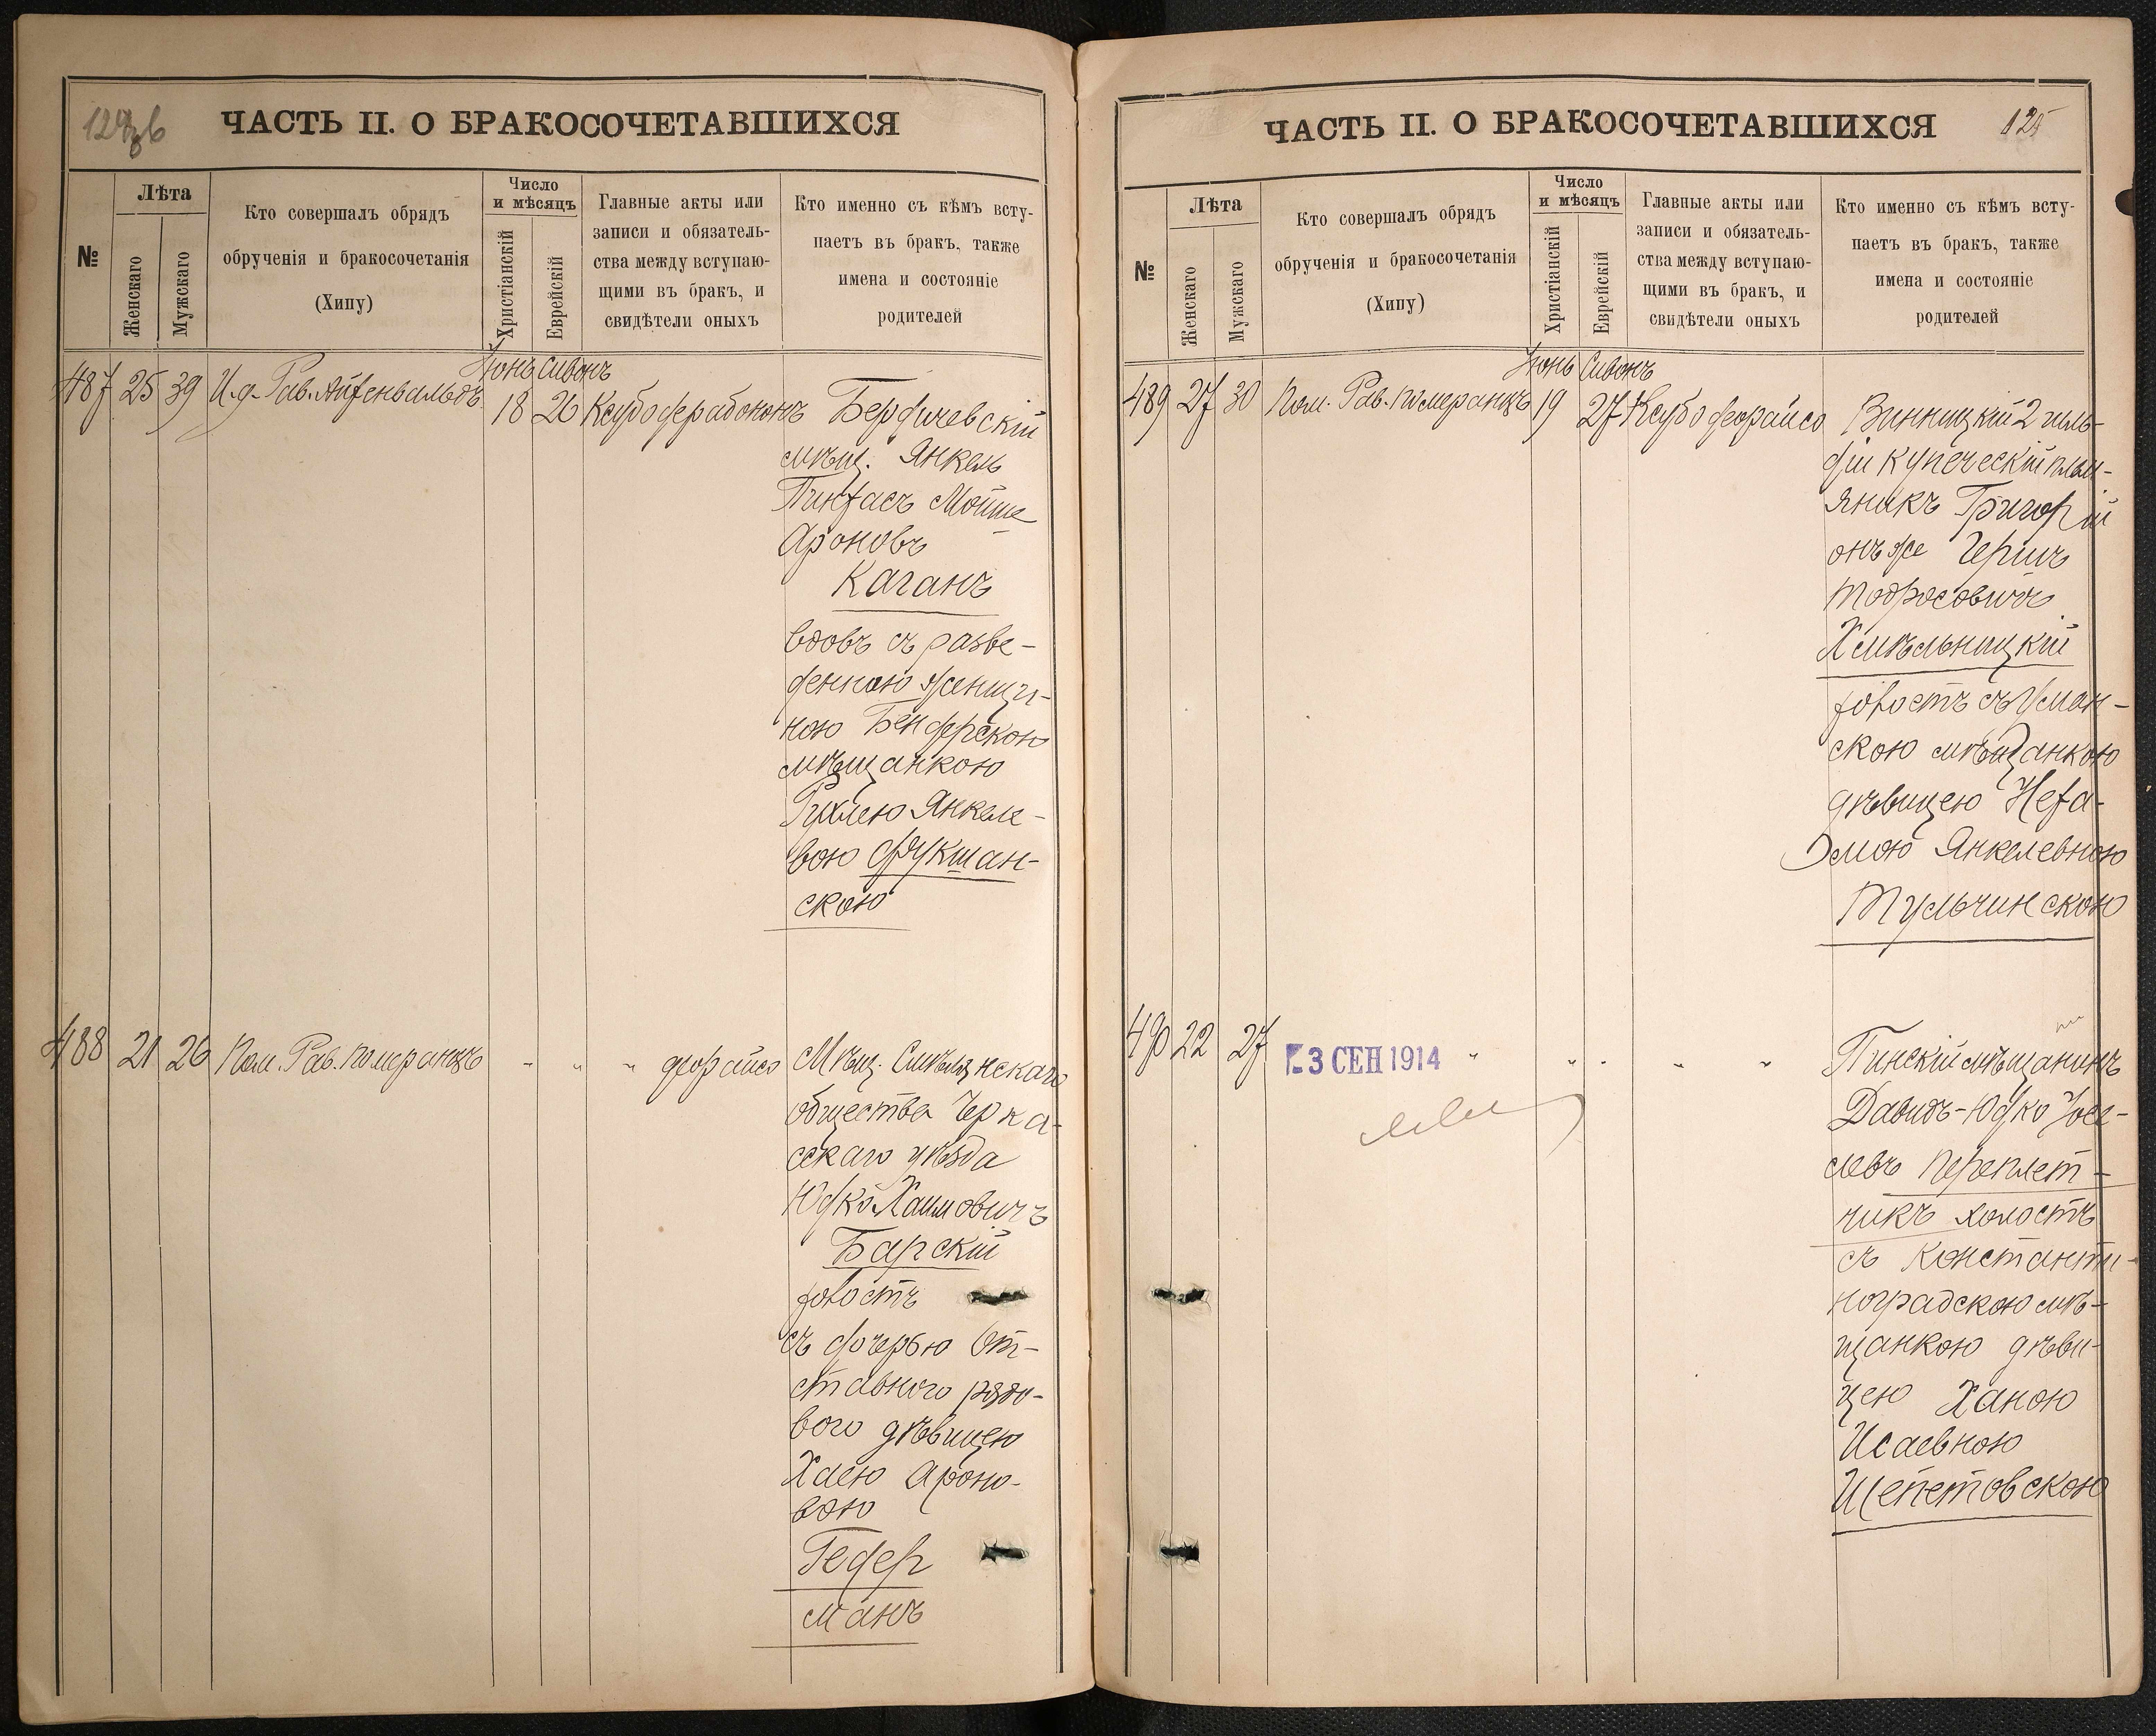 ЧАСТЬ II. О БРАКОСОЧЕТАВШИХСЯ
№
Лѣта
Женскаго
Мужскаго
Кто совершалъ обрядъ
обрученія и бракосочетанія
(Хипу)
Число
и мѣсяцъ
Христіанскій
Еврейскій
Главные акты или
записи и обязатель-
ства между вступаю-
щими въ бракъ, и
свидѣтели оныхъ
Кто именно съ кѣмъ всту-
паетъ въ бракъ, также
имена и состояніе
родителей
487 25 39 И.д. Рав. Айзенвальдъ
Іюнь Сивонъ
18 26
Бердичевскій
мѣщ. Янкель
Пинхасъ Мойше
Ароновъ
Каганъ
вдовъ съ разве-
денною женщи-
ною Бендерскою
мѣщанкою
Рухлею Янкеле-
вою Фукшан-
скою
488 21 26 Пом. Рав. Померанцъ " " " дерайсо
Мѣщ. Смѣлянскаго
общества Черка-
сскаго уѣзда
Юдко Хаимовичъ
Барскій
холостъ
съ дочерью От-
ставного рядо-
вого дѣвицею
Хаею Ароно-
вою
Гедер
манъ
ЧАСТЬ II. О БРАКОСОЧЕТАВШИХСЯ
125
№
Лѣта
Женскаго
Мужскаго
Кто совершалъ обрядъ
обрученія и бракосочетанія
(Хипу)
Число
и мѣсяцъ
Христіанскій
Еврейскій
Главные акты или
записи и обязатель-
ства между вступаю-
щими въ бракъ, и
свидѣтели оныхъ
Кто именно съ кѣмъ всту-
паетъ въ бракъ, также
имена и состояніе
родителей
489 27 30 Пом. Рав. Померанцъ
Іюнь Сивонъ
19 27 Ксубо дерайсо
Винницкій 2 гиль-
діи купеческій плем-
яникъ Григорій
онъ же Гершъ
Тодросовичъ
Хмѣльницкій
холостъ съ Уман-
скою мѣщанкою
дѣвицею Неха-
мою Янкелевною
Тульчинскою
490 22 27 " " " " "
3 СЕН 1914
Пинскій мѣщанинъ
Давидъ-Юдко Іосе-
левъ Переплет-
чикъ холостъ
съ Константи-
ноградскою мѣ-
щанкою дѣви-
цею Ханою
Исаевною
Шепетовскою